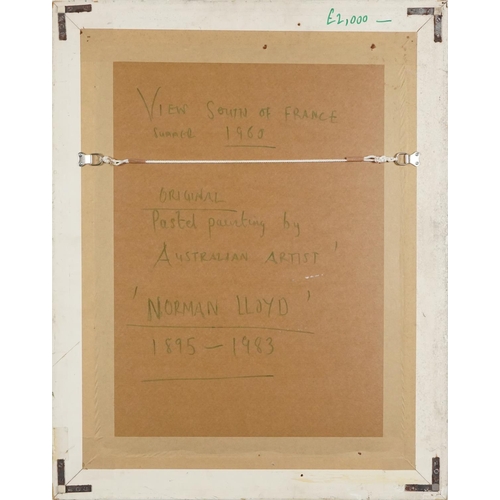 £2,000 —
VIEW SOUTH OF FRANCE
SUMMER 1963
ORIGINAL
Pastel painting by
AUSTRALIAN ARTIST '
' NORMAN LLOYD '
1895 — 1983